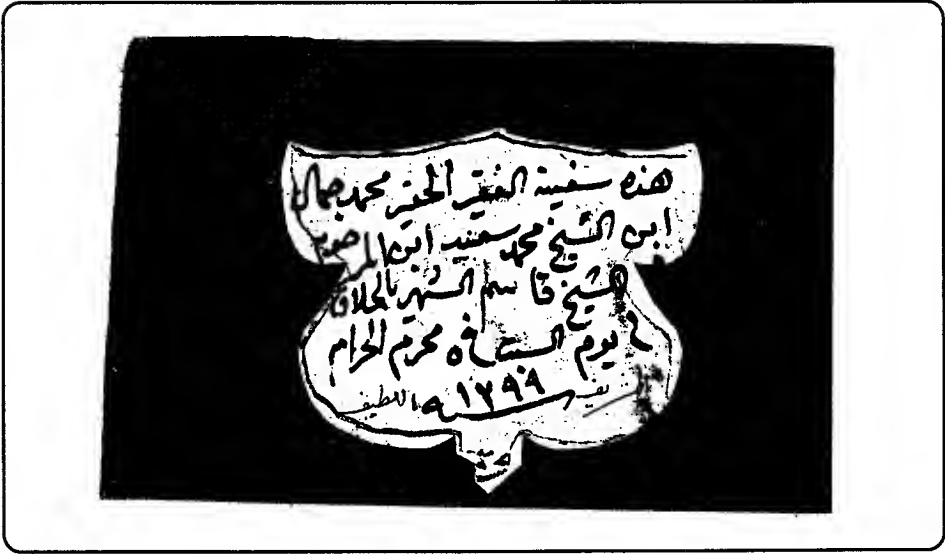 هذه سفينة الفقير الحقير محمد جمال
ابن الشيخ محمد سعيد ابن المرحوم
الشيخ قاسم الشهير بالحلاق
في يوم السبت في ٥ محرم الحرام
سنه ١٢٩٩